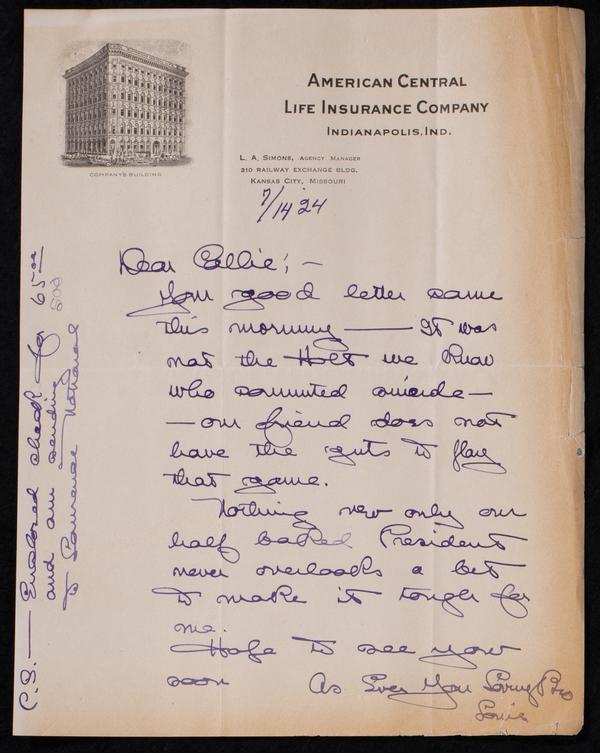 AMERICAN CENTRAL
LIFE INSURANCE COMPANY
INDIANAPOLIS, IND.
COMPANY'S BUILDING
L. A. SIMONS, AGENCY MANAGER
310 RAILWAY EXCHANGE BLDG.
KANSAS CITY, MISSOURI
7/14 24
Dear Collie; -
Your good letter came
this morning — It was
not the Holt we know
who commited suicide -
- our friend does not
have the guts to play
that game.
Nothing new only our
half baked President
never overlooks a bet
to make it tough for
me.
Hope to see you
soon As Ever Your Loving Bro
Louie
P.S. — Enclosed check for 65 00
and am sending 500
to Lawrence National